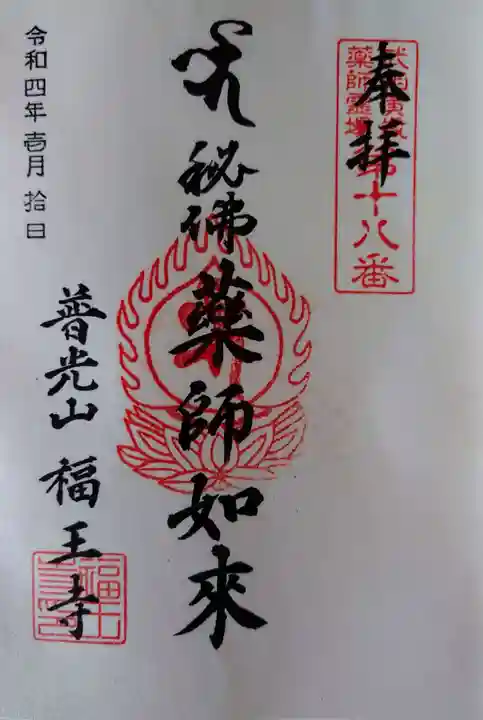 奉拝
武南廣域
薬師霊場
第十八番
秘佛薬師如來
普光山 福王寺
令和四年壱月拾日